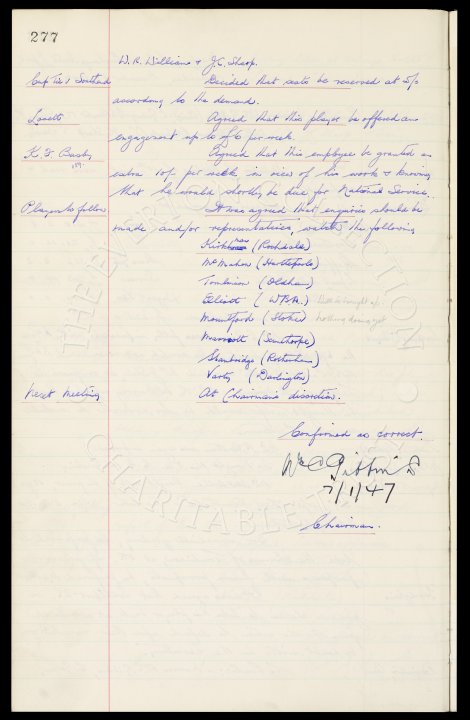 277
W. R. Williams & J. C. Sharp.
Cup Tie v Southend Decided that seats be reserved at 5/-
according to the demand.
Lovett Agreed that this player be offered an
engagement up to per week
K. I. Busby Agreed that this employee be granted an
extra 10/- per week in view of his work & knowing
that he would shortly be due for National Service.
Players to follow It was agreed that enquiries should be
made and/or representatives watch the following
(Rochdale)
McMahon (Hartlepools)
Tomlinson (Oldham)
Elliott (WBA.)
Mountford (Stoke) nothing doing yet
Marriott (Scunthorpe)
Stanbridge (Rotherham)
Varty (Darlington)
Next Meeting At Chairman's discretion.
Confirmed as correct.
W C Gibbins
7/1/47
Chairman.
THE EVERTON COLLECTION
CHARITABLE TRUST